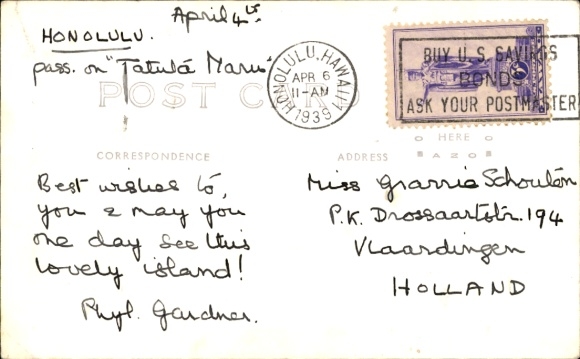 April 4th.
HONOLULU.
pass. on "Tatutá Maru"
POST CARD
HONOLULU, HAWAII
APR 6
11-AM
1939
BUY U.S. SAVINGS
BONDS
ASK YOUR POSTMASTER
HERE
AZO
CORRESPONDENCE
ADDRESS
Best wishes to,
you & may you
one day see this
lovely island!
Phyl. Gardner.
Miss Grarria Schoutón
P.K. Drossaartstr. 194
Vlaardingen
HOLLAND